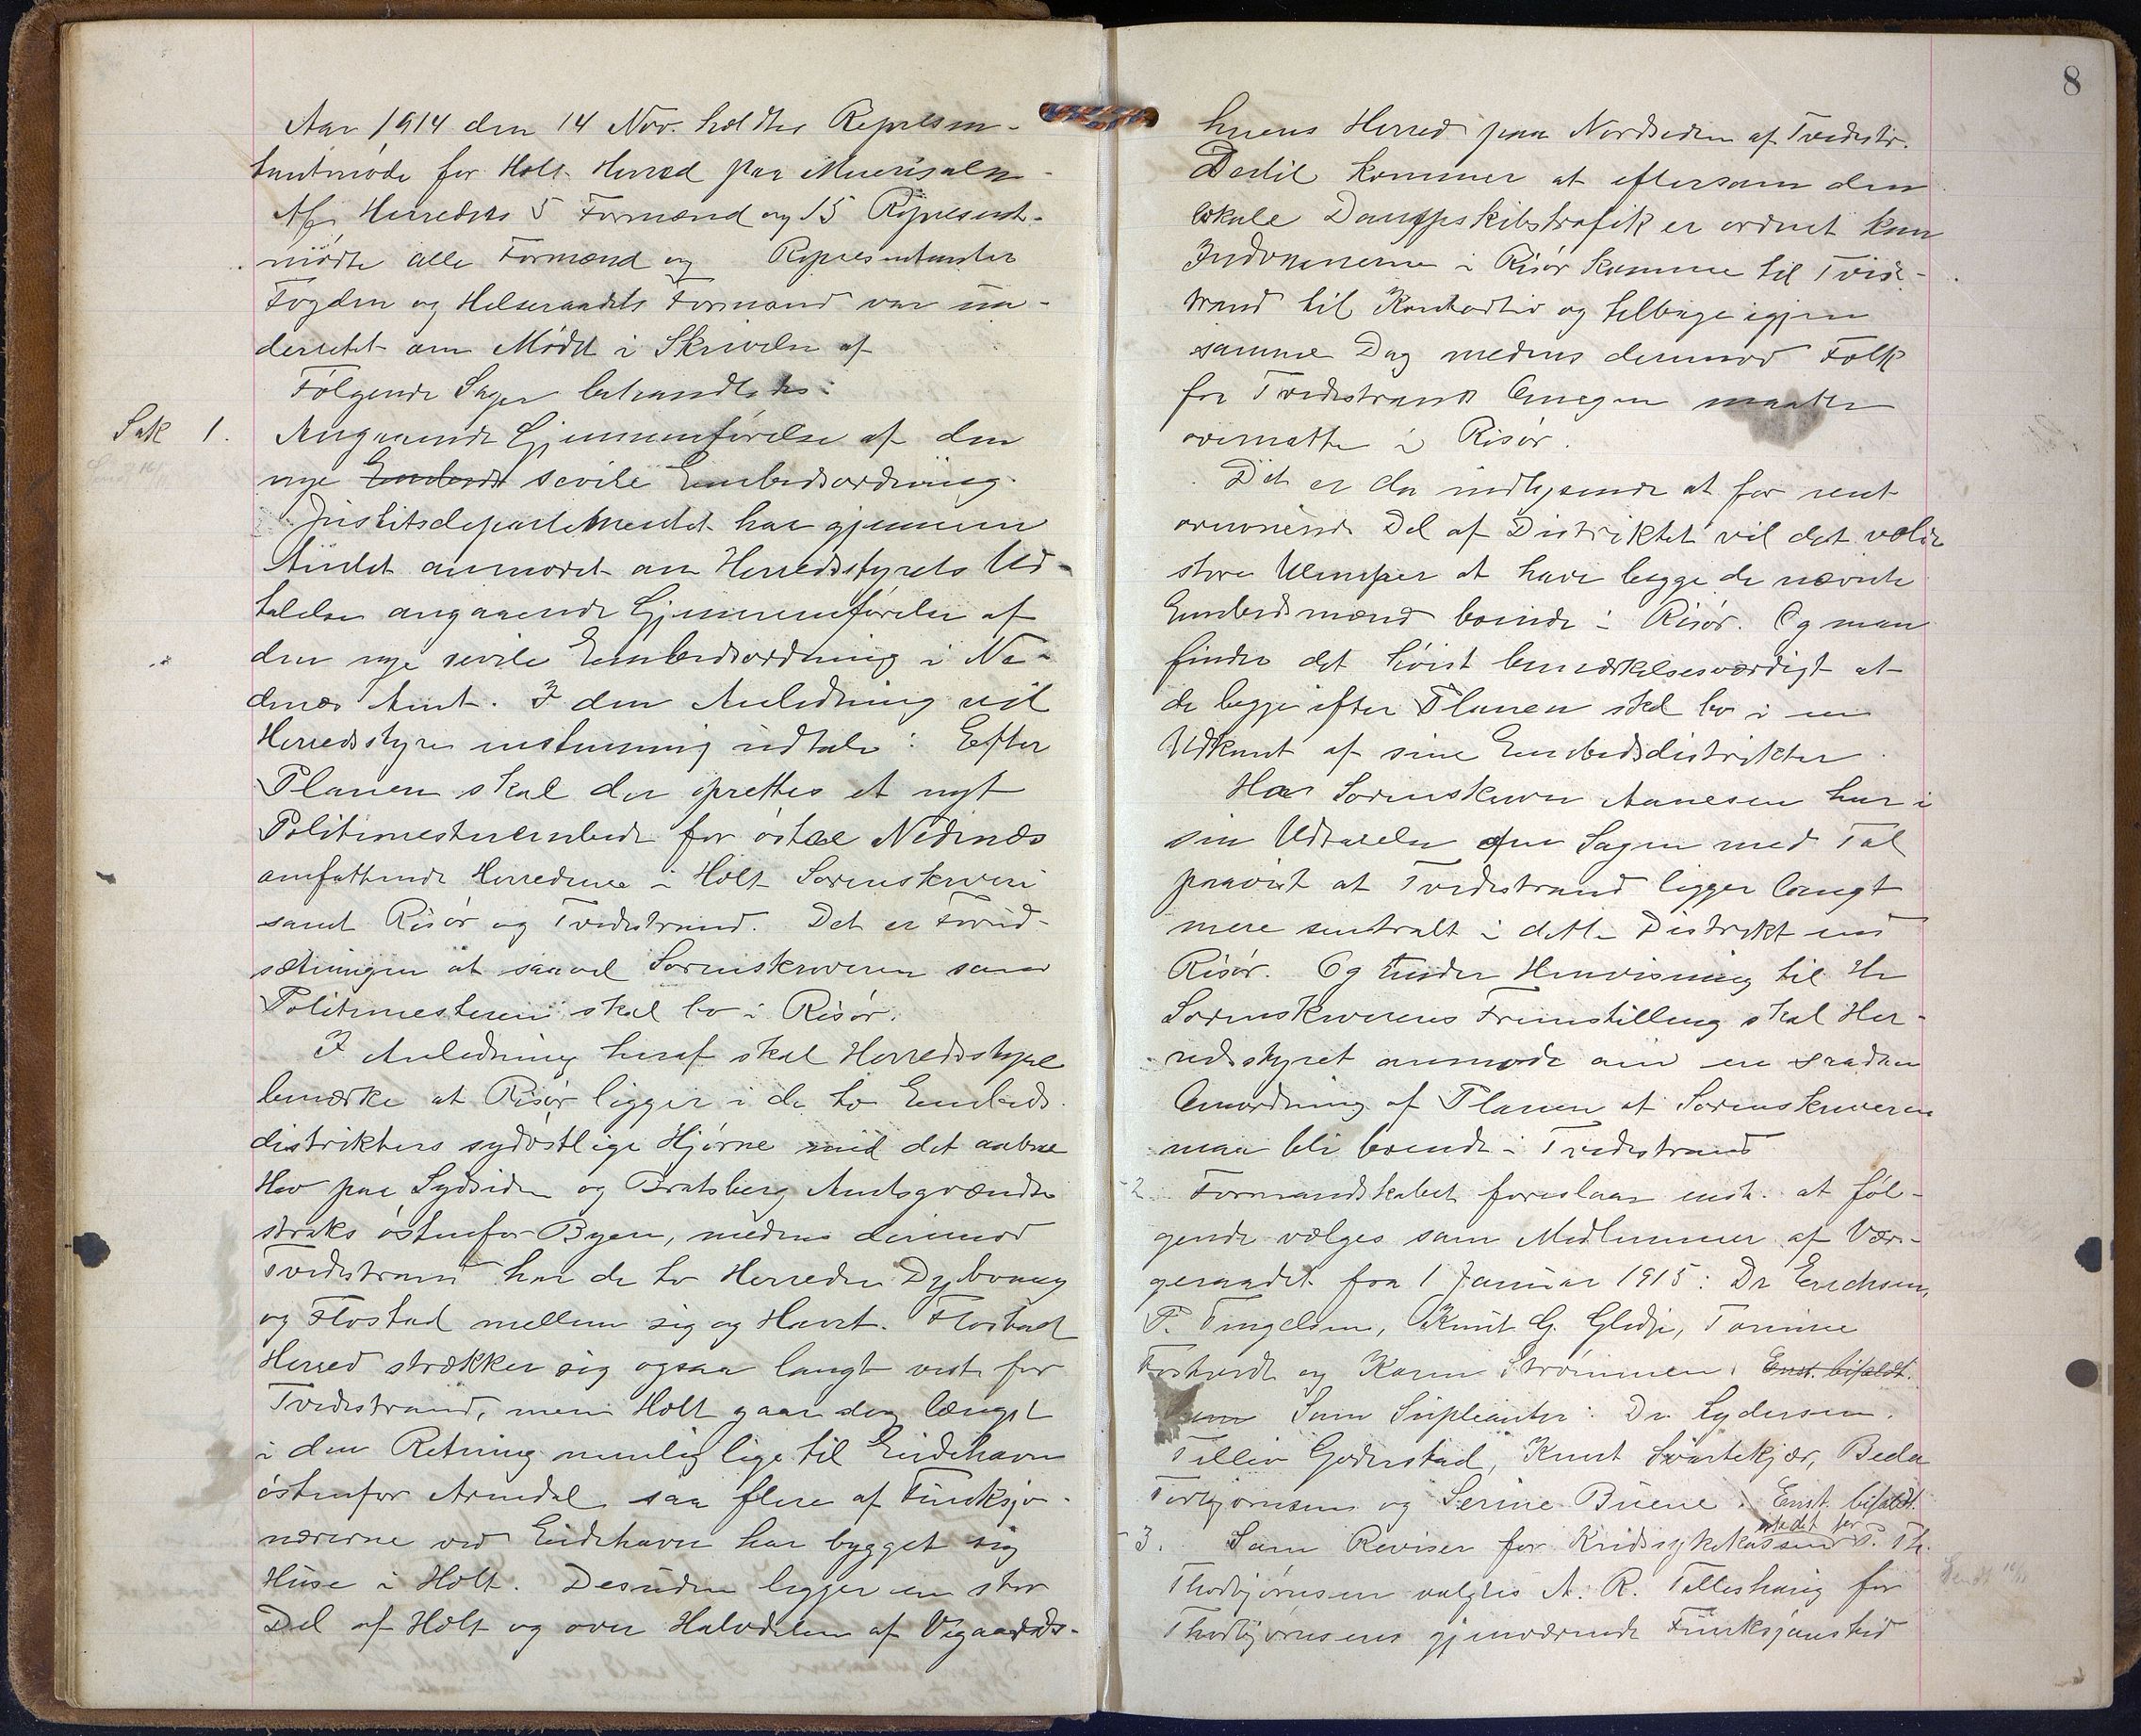 Aar 1914 den 14 Nov. holdtes Represen-
tantmøde for Holt Herred paa
Af Herredets 5 Formænd og 15 Represent.
mødte alle Formænd og Representanter
Fogden og Helseraadets Formand var un-
derrettet om Mødet i Skrivelse af
Følgende Sager behandledes:
Sak 1. Angaaende Gjennemførelse af den
nye Embeds sivile Embedsordning.
Justitsdepartementet har gjennem
Amtet anmodet om Herredsstyrets Ud-
talelse angaaende Gjennemførelse af
den nye sivile Embedsordning i Ne-
denes Amt. I den Anledning vil
Herredsstyre enstemmig udtale: Efter
Planen skal der oprettes et nyt
Politimesterembede for østre Nedenæs
omfattende Herrederne i Holt Sorenskriveri
samt Risør og Tvedestrand. Det er Forud-
sætningen at saavel Sorenskriveren som
Politimesteren skal bo i Risør.
I Anledning heraf skal Herredsstyre
bemærke at Risør ligger i de to Embeds
distrikters sydøstlige Hjørne med det aabne
Hav paa Sydsiden og Bratsberg Amtsgrændse
straks østenfor Byen, medens derimod
Tvedestrand har de to Herreder Dybvaag
og Flostad mellem sig og Havet. Flostad
Herred strækker sig ogsaa langt vest for
Tvedestrand, men Holt gaar dog længst
i den Retning nemlig lige til Eidehavn
østenfor Arendal saa flere af Funksjo-
nærerne ved Eidehavn har bygget sig
Huse i Holt. Desuden ligger en stor
Del af Holt og over Halvdelen af Vegaards-
8
heiens Herred paa Nordsiden af Tvedestr.
Dertil kommer at eftersom den
lokale Dampskibstrafik er ordnet kan
Indvonerne i Risør komme til Tvede-
strand til Kontortid og tilbage igjen
samme Dag medens derimod Folk
fra Tvedestrands Omegn maatte
overnatte i Risør.
Det er da indlysende at for rent
overveiende Del af Distriktet vil det volde
store Ulemper at have begge de nævnte
Embedsmænd boende i Risør. Og man
finder det høist bemærkelsesværdigt at
de begge efter Planen skal bo i en
Udkant af sine Embedsdistrikter.
Hr Sorenskriver Aanesen har i
sin Udtalelse om Sagen med Tal
paavist at Tvedestrand ligger langt
mere sentralt i dette Distrikt end
Risør. Og under Henvisning til Hr
Sorenskriverens Fremstilling skal Her-
redsstyret anmode om en saadan
Omordning af Planen at Sorenskriveren
maa bli boende i Tvedestrand
2. Formandskabet foreslaar enst. at føl-
gende vælges som Medlemmer af Vær-
geraadet fra 1 Januar 1915: Dr Erichsen,
P. Fingelsen, Knut G. Gliddi, Tomine
og Karen Strømmen. Enst. bifaldt.
Som Suplianter: Dr. Lydersen.
Tellev Goderstad, Knut Svartekjær, Beda
Torbjørnsen og Serine Buene. Enst. bifaldt.
3. Som Revisor for Kredssykekassen istedet for P. Th.
Thorbjørnsen valgtes A. R. Telleshaug for
Thorbjørnsens gjenværende Funksjonstid
Sendt